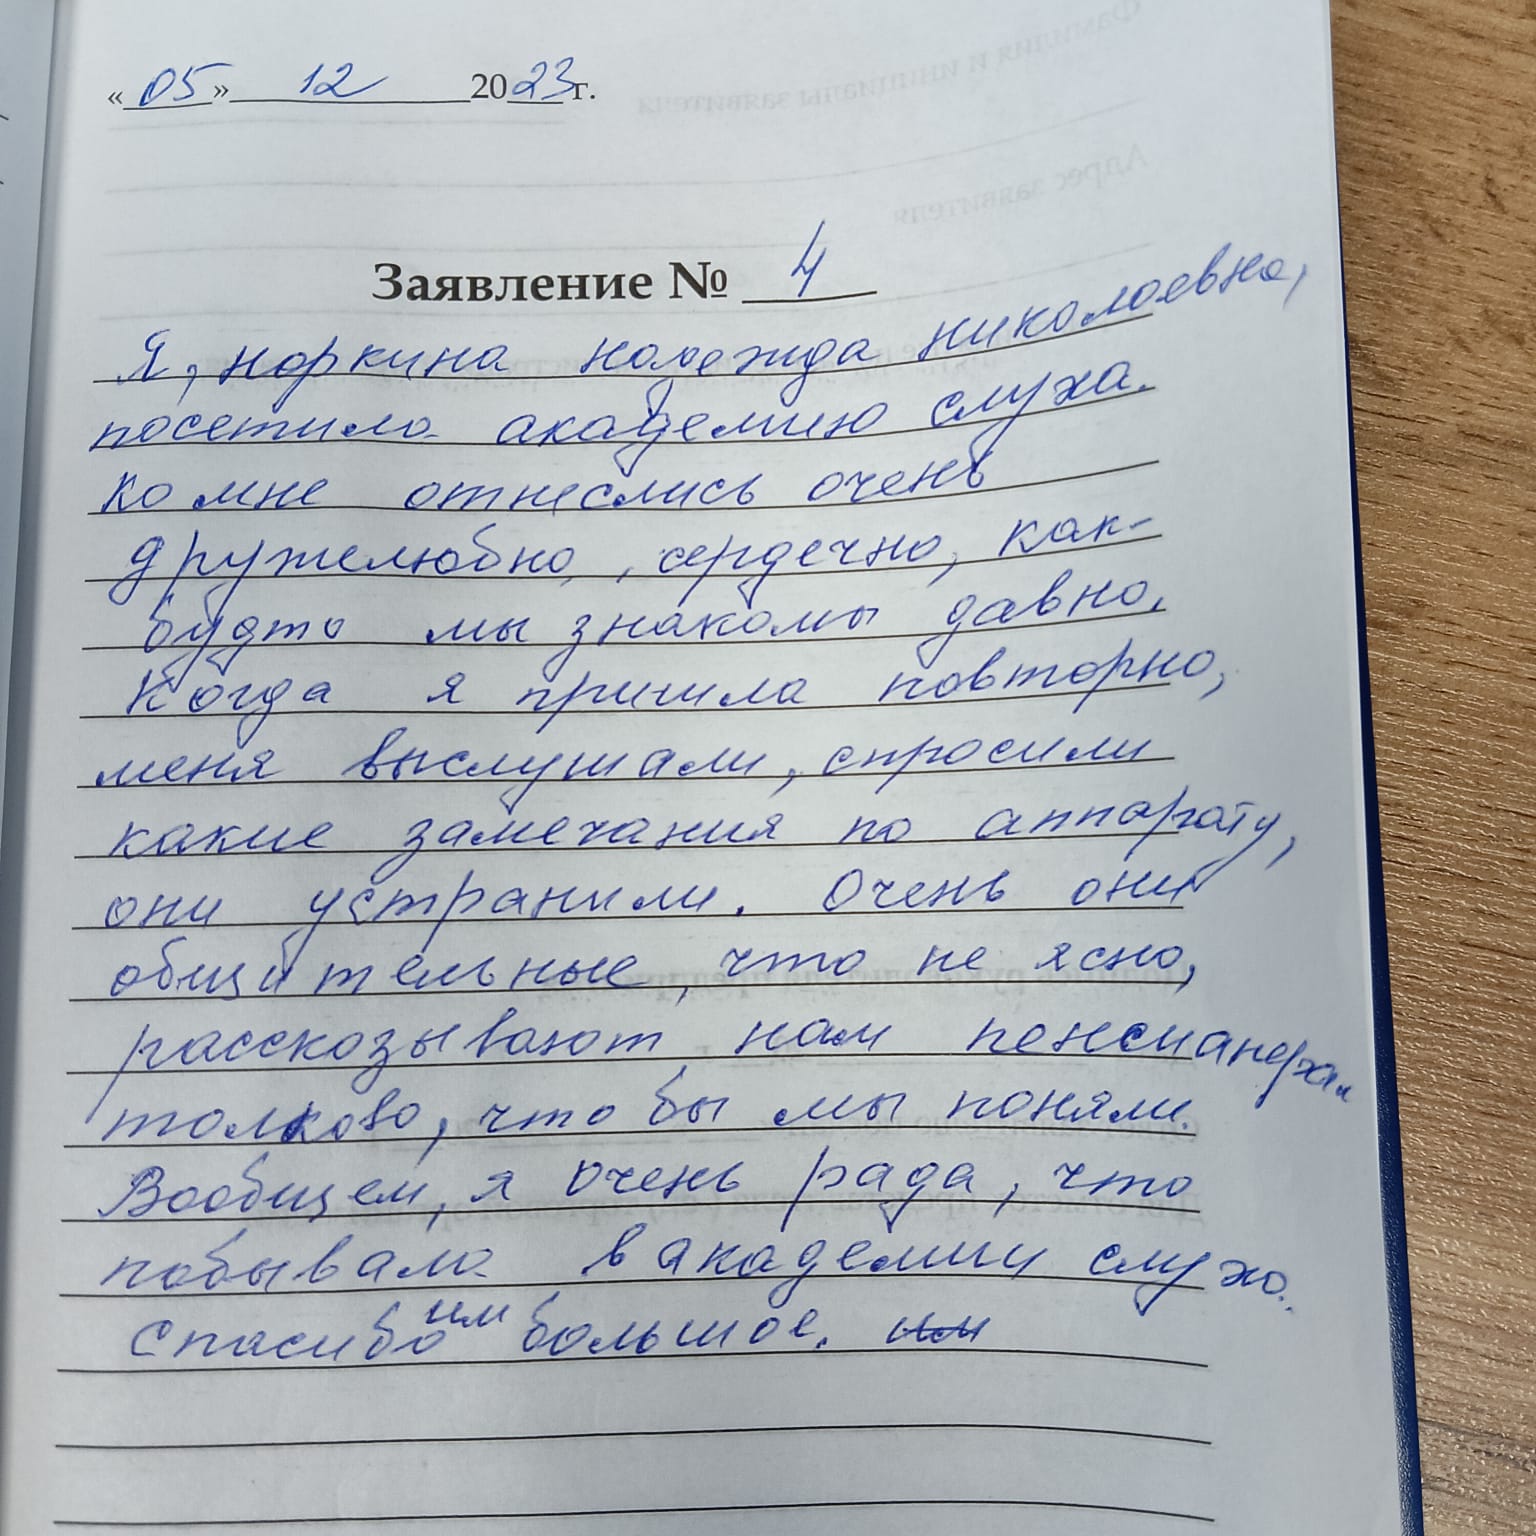 «05» 12 2023 г.
Заявление № 4
Я, норкина надежда николаевна,
посетила академию слуха.
Ко мне отнеслись очень
дружелюбно, сердечно, как-
будто мы знакомы давно.
Когда я пришла повторно,
меня выслушали, спросили
какие замечания по аппарату,
они устранили. Очень они
общительные, что не ясно,
рассказывают нам пенсианерам
толково, что бы мы поняли.
Вообщем, я очень рада, что
побывала в академии слуха.
Спасибо им большое.